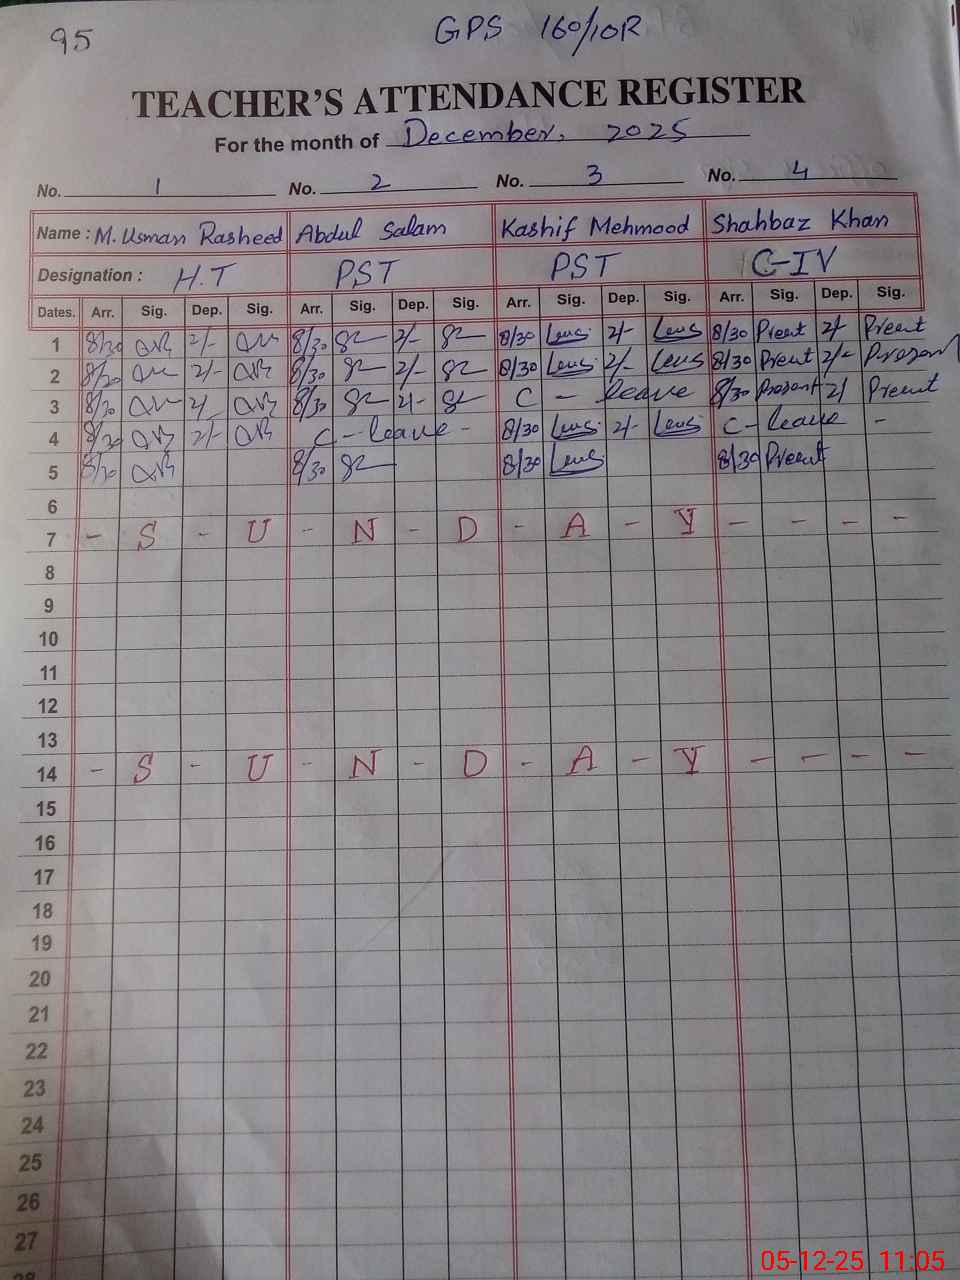 95
GPS 160/10R
TEACHER'S ATTENDANCE REGISTER
For the month of December, 2025
No. 1 No. 2 No. 3 No. 4
Name : M. Usman Rasheed Abdul Salam Kashif Mehmood Shahbaz Khan
Designation : H.T PST PST C-IV
Dates. Arr. Sig. Dep. Sig. Arr. Sig. Dep. Sig. Arr. Sig. Dep. Sig. Arr. Sig. Dep. Sig.
1 8/30 2/- 8/30 2/- 8/30 2/- 8/30 Preent 2/- Preent
2 8/30 2/- 8/30 2/- 8/30 2/- 8/30 Preent 2/- Present
3 8/30 2/ 8/30 2/- C - leave 8/30 Present 2/ Preent
4 8/30 2/- C - leave - 8/30 2/- C - leave -
5 8/30 8/30 8/30 8/30 Preent
6
7 - S - U - N - D - A - Y - - - -
8
9
10
11
12
13
14 - S - U - N - D - A - Y - - - -
15
16
17
18
19
20
21
22
23
24
25
26
27
28
05-12-25 11:05